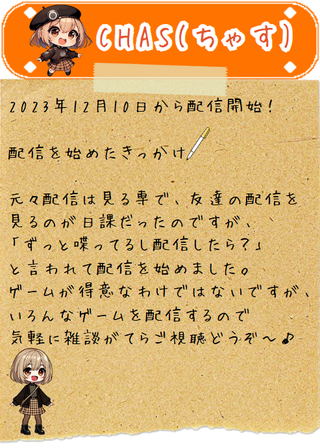 CHAS(ちゃす)
2023年12月10日から配信開始!
配信を始めたきっかけ
元々配信は見る専で、友達の配信を
見るのが日課だったのですが、
「ずっと喋ってるし配信したら?」
と言われて配信を始めました。
ゲームが得意なわけではないですが、
いろんなゲームを配信するので
気軽に雑談がてらご視聴どうぞ～♪